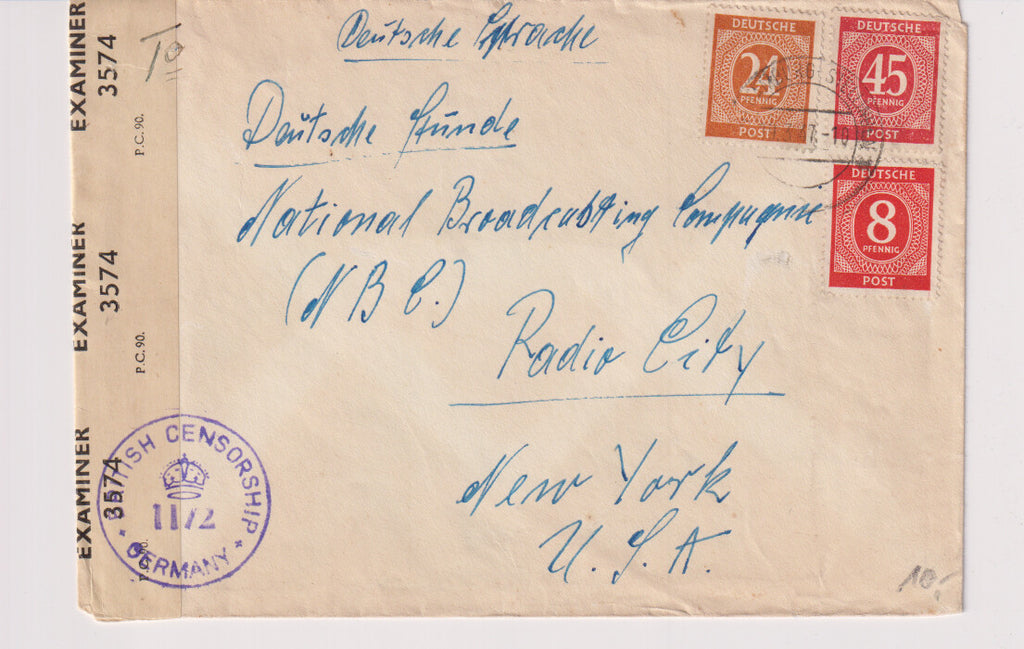 EXAMINER 3574
P.C. 90.
EXAMINER 3574
P.C. 90.
EXAMINER 3574
P.C. 90.
BRITISH CENSORSHIP
1172
GERMANY
Deutsche Sprache
Deutsche Stunde
National Broadcasting Compagnie
(N B C.)
Radio City
New York
U. S. A.
DEUTSCHE
24
PFENNIG
POST
DEUTSCHE
45
PFENNIG
POST
DEUTSCHE
8
PFENNIG
POST
10.-